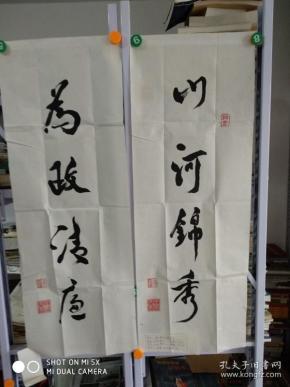 山河錦秀
為政清廉
SHOT ON MI 5X
MI DUAL CAMERA
孔夫子旧书网